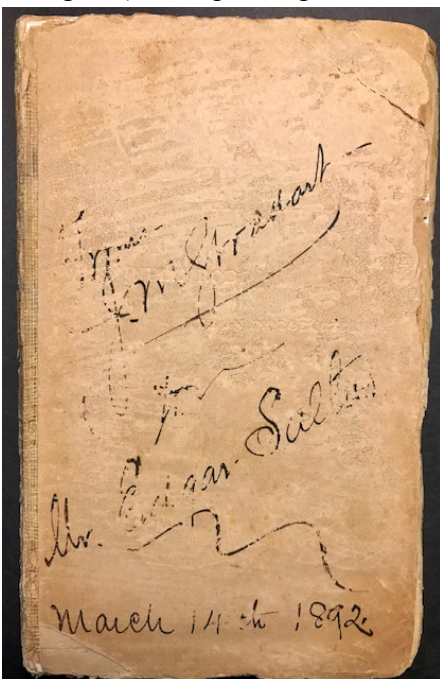 From
J M Stoddart
Mr. Edgar Saltus
March 14th 1892.